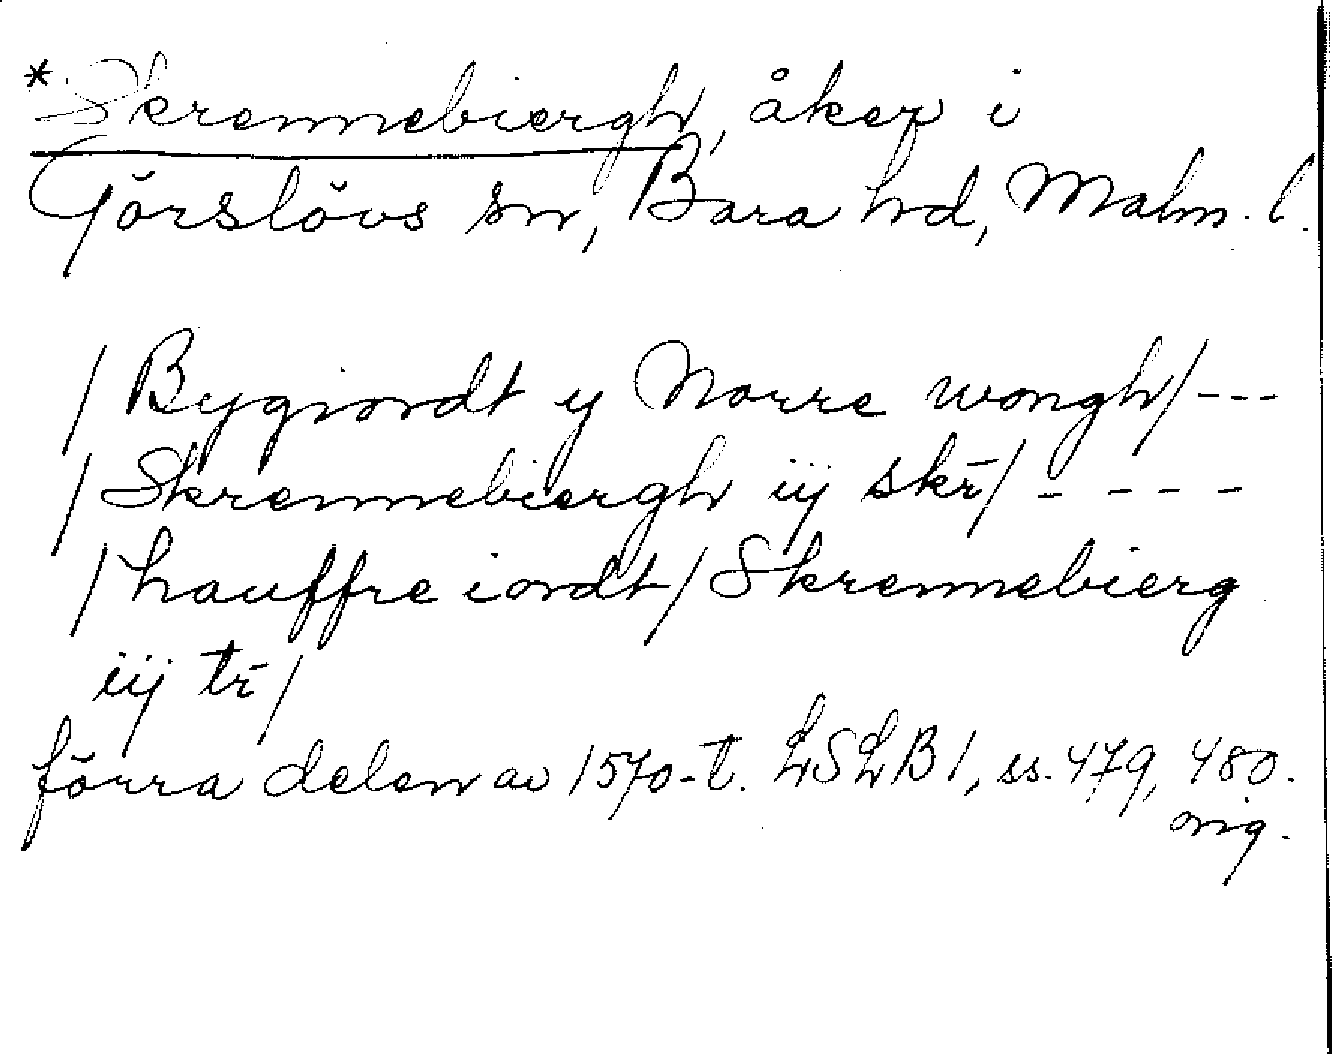 *Skrennebiergh, åker i
Görslövs sn, Bara hd, Malm. l.
/Bygiordt y Norre wongh/---
/Skrennebiergh iij skr̄/----
/hauffre iordt/Skrennebierg
iij tr̄/
förra delen av 1570-t. LSLB1, ss. 479, 480.
orig.